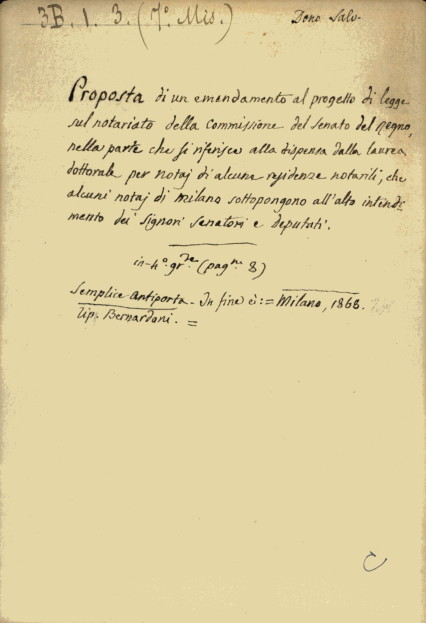 3B. 1. 3. (7º. Mis.)
Dono Salv.
Proposta di un emendamento al progetto di legge
sul notariato della Commissione del Senato del Regno,
nella parte che si riferisce alla dispensa dalla laurea
dottorale per notaj di alcune residenze notarili, che
alcuni notaj di Milano sottopongono all'alto intendi-
mento dei Signori Senatori e deputati.
in-4º. gr.de (pag.ne 8)
Semplice Antiporta. In fine è: = Milano, 1868.
Tip. Bernardoni. =
C